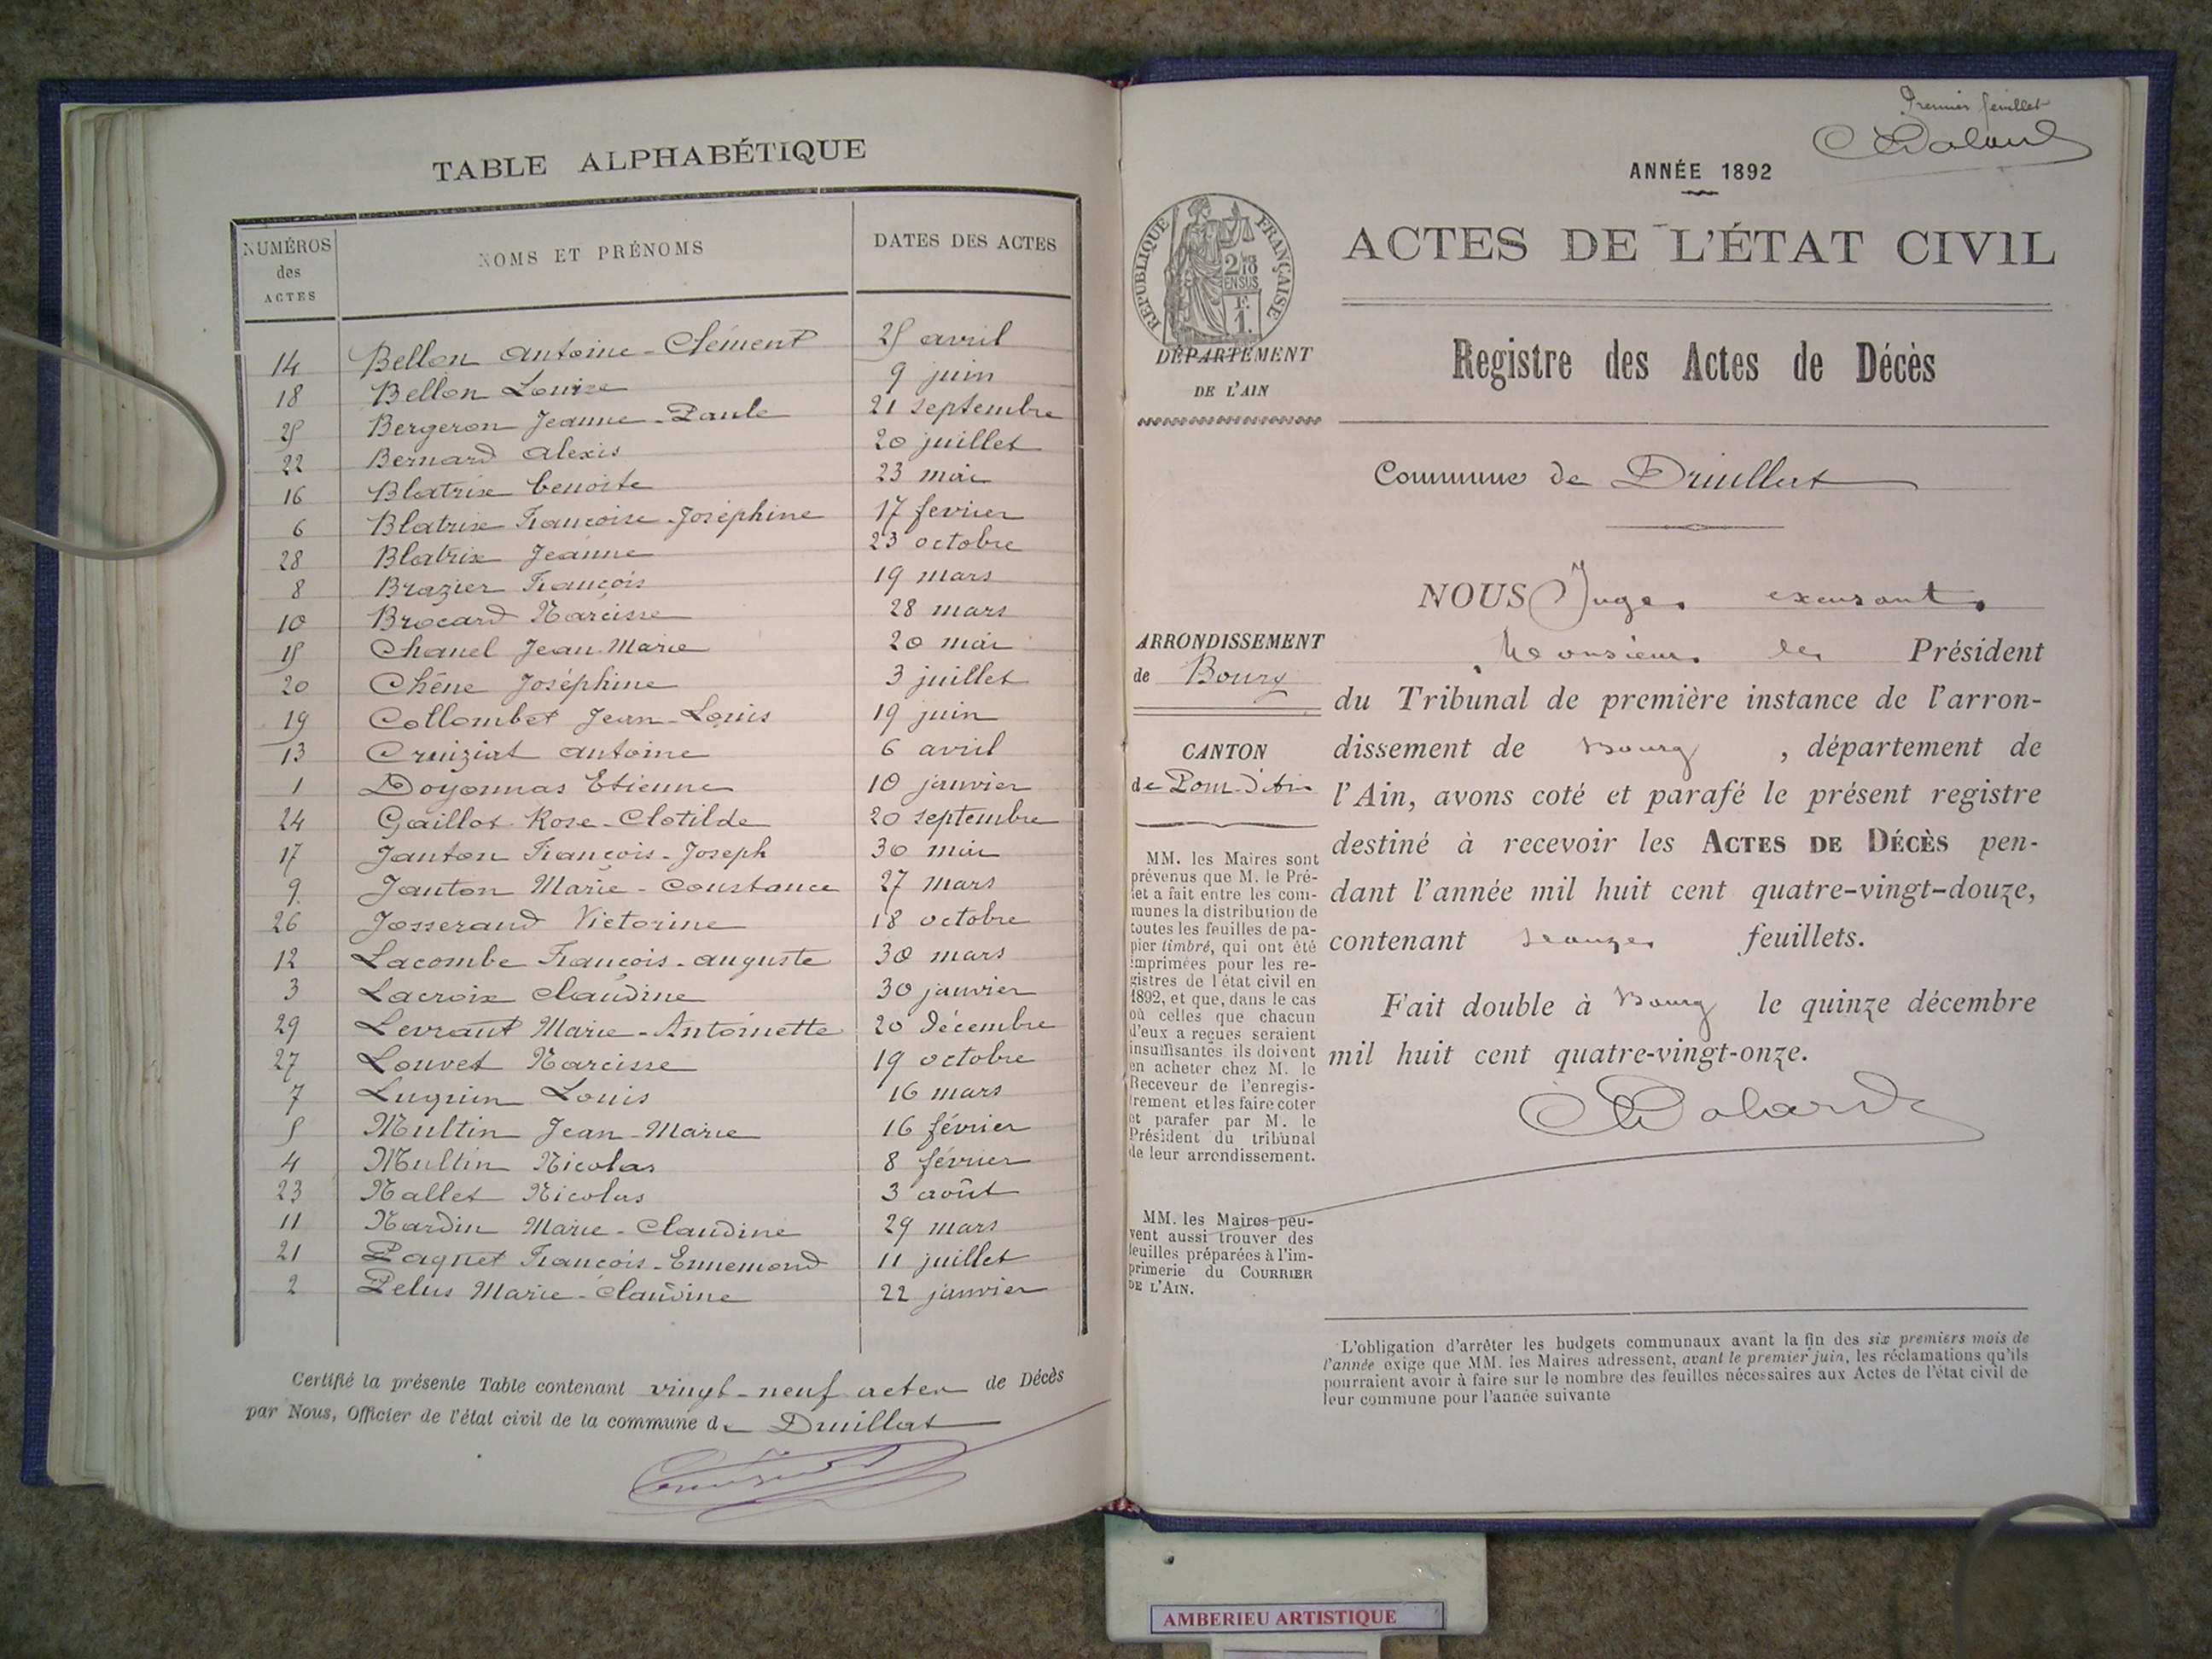 TABLE ALPHABÉTIQUE
NUMÉROS des ACTES | NOMS ET PRÉNOMS | DATES DES ACTES
14 Bellon Antoine-Clément 25 avril
18 Bellon Louise 9 juin
25 Bergeron Jeanne-Paule 21 septembre
22 Bernard Alexis 20 juillet
16 Blatrix benoite 23 mai
6 Blatrix Françoise-Joséphine 17 fevrier
28 Blatrix Jeanne 23 octobre
8 Brazier François 19 mars
10 Brocard Narcisse 28 mars
15 Chanel Jean-Marie 20 mai
20 Chêne Joséphine 3 juillet
19 Collombet Jean-Louis 19 juin
13 Cruiziat Antoine 6 avril
1 Doyonnas Etienne 10 janvier
24 Gaillot Rose-Clotilde 20 septembre
17 Janton François-Joseph 30 mai
9 Janton Marie-Constance 27 mars
26 Josserand Victorine 18 octobre
12 Lacombe François-auguste 30 mars
3 Lacroix Claudine 30 janvier
29 Levraut Marie-Antoinette 20 décembre
27 Louvet Narcisse 19 octobre
7 Luquin Louis 16 mars
5 Multin Jean-Marie 16 février
4 Multin Nicolas 8 février
23 Nallet Nicolas 3 août
11 Nardin Marie-Claudine 29 mars
21 Paquet François-Ennemond 11 juillet
2 Pelus Marie-Claudine 22 janvier
Certifié la présente Table contenant vingt-neuf actes de Décès
par Nous, Officier de l'état civil de la commune de Druillat
Premier feuillet
ANNÉE 1892
ACTES DE L'ÉTAT CIVIL
RÉPUBLIQUE FRANÇAISE
2/10 EN SUS
F. 1.
DÉPARTEMENT
DE L'AIN
Registre des Actes de Décès
Commune de Druillat
ARRONDISSEMENT
de Bourg
CANTON
de Pont-d'Ain
MM. les Maires sont
prévenus que M. le Pré-
fet a fait entre les com-
munes la distribution de
toutes les feuilles de pa-
pier timbré, qui ont été
imprimées pour les re-
gistres de l'état civil en
1892, et que, dans le cas
où celles que chacun
d'eux a reçues seraient
insuffisantes ils doivent
en acheter chez M. le
Receveur de l'enregis-
trement et les faire coter
et parafer par M. le
Président du tribunal
de leur arrondissement.
MM. les Maires peu-
vent aussi trouver des
feuilles préparées à l'im-
primerie du COURRIER
DE L'AIN.
NOUS Juge excusant
Monsieur le Président
du Tribunal de première instance de l'arron-
dissement de Bourg , département de
l'Ain, avons coté et parafé le présent registre
destiné à recevoir les ACTES DE DÉCÈS pen-
dant l'année mil huit cent quatre-vingt-douze,
contenant feuillets.
Fait double à Bourg le quinze décembre
mil huit cent quatre-vingt-onze.
L'obligation d'arrêter les budgets communaux avant la fin des six premiers mois de
l'année exige que MM. les Maires adressent, avant le premier juin, les réclamations qu'ils
pourraient avoir à faire sur le nombre des feuilles nécessaires aux Actes de l'état civil de
leur commune pour l'année suivante
AMBERIEU ARTISTIQUE